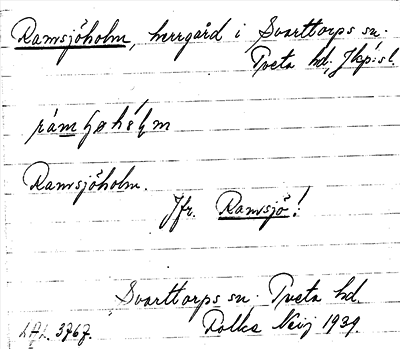 Ramsjöholm, herrgård i Svarttorps sn.
Tveta hd, Jkp:s l.
Ramsjöholm.
Jfr. Ramsjö!
Svarttorps sn. Tveta hd.
LAL. 3767. Folke Neij 1939.